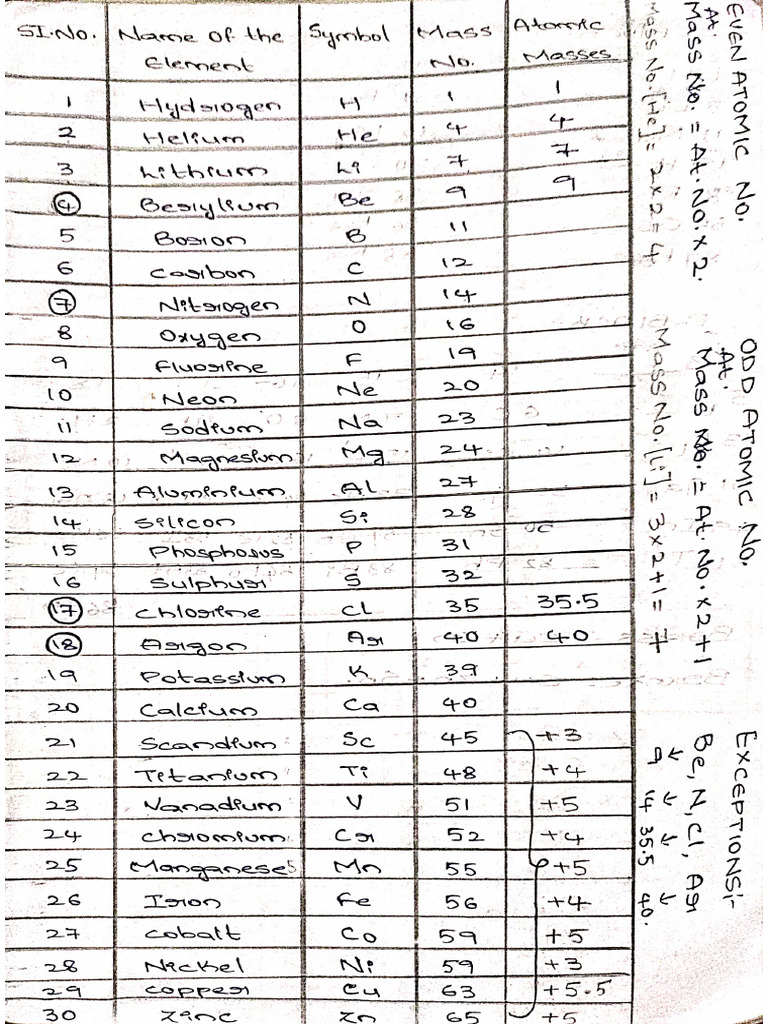 SI.No. Name of the Element Symbol Mass No. Atomic Masses
1 Hydrogen H 1 1
2 Helium He 4 4
3 Lithium Li 7 7
4 Berylium Be 9 9
5 Boron B 11
6 Carbon C 12
7 Nitrogen N 14
8 Oxygen O 16
9 Fluorine F 19
10 Neon Ne 20
11 Sodium Na 23
12 Magnesium Mg 24
13 Aluminium Al 27
14 Silicon Si 28
15 Phosphorus P 31
16 Sulphur S 32
17 Chlorine Cl 35 35.5
18 Argon Ar 40 40
19 Potassium K 39
20 Calcium Ca 40
21 Scandium Sc 45 +3
22 Titanium Ti 48 +4
23 Vanadium V 51 +5
24 Chromium Cr 52 +4
25 Manganese Mn 55 +5
26 Iron Fe 56 +4
27 Cobalt Co 59 +5
28 Nickel Ni 59 +3
29 Copper Cu 63 +5.5
30 Zinc Zn 65 +5
EVEN ATOMIC No.
At. Mass No. = At. No. x 2.
Mass No. [He] = 2 x 2 = 4
ODD ATOMIC No.
At. Mass No. = At. No. x 2 + 1
Mass No. [Li] = 3 x 2 + 1 = 7
EXCEPTIONS:-
Be, N, Cl, Ar
↓ ↓ ↓ ↓
9 14 35.5 40.